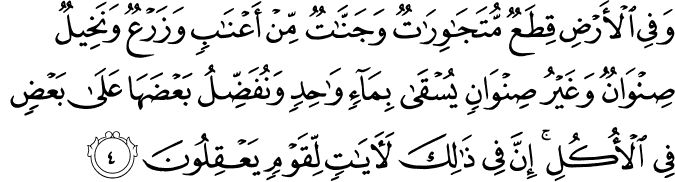 وَفِي ٱلْأَرْضِ قِطَعٌ مُّتَجَـٰوِرَٰتٌ وَجَنَّـٰتٌ مِّنْ أَعْنَـٰبٍ وَزَرْعٌ وَنَخِيلٌ
صِنْوَانٌ وَغَيْرُ صِنْوَانٍ يُسْقَىٰ بِمَآءٍ وَٰحِدٍ وَنُفَضِّلُ بَعْضَهَا عَلَىٰ بَعْضٍ
فِي ٱلْأُكُلِ ۚ إِنَّ فِي ذَٰلِكَ لَـَٔايَـٰتٍ لِّقَوْمٍ يَعْقِلُونَ ٤